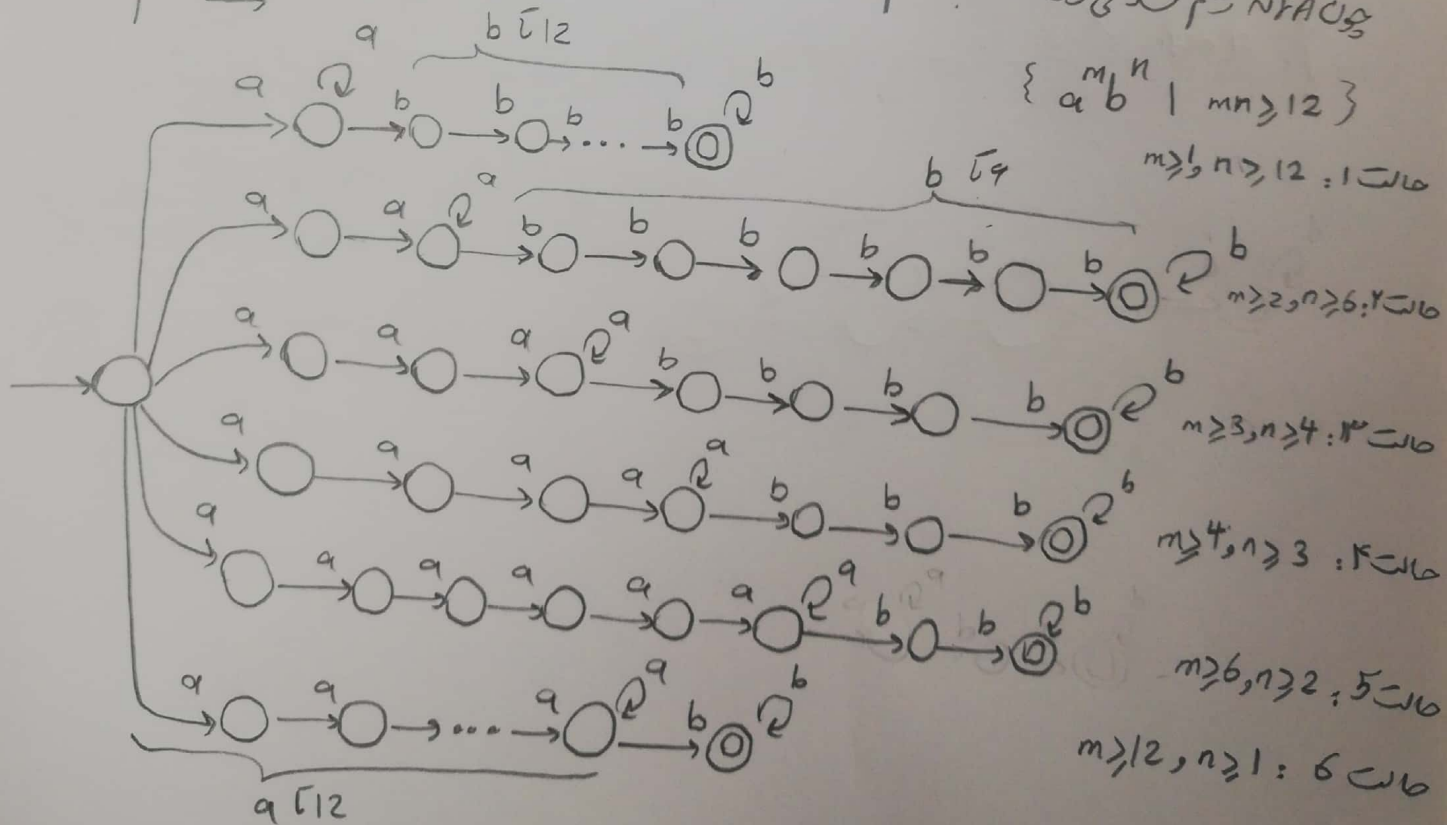 NFA
{ aᵐbⁿ | mn ≥ 12 }
a a b تا 12 b b b b b
حالت 1 : m ≥ 1, n ≥ 12
a a a b تا ۶ b b b b b b b
حالت ۲ : m ≥ 2, n ≥ 6
a a a a b b b b b
حالت ۳ : m ≥ 3, n ≥ 4
a a a a a b b b b
حالت ۴ : m ≥ 4, n ≥ 3
a a a a a a a b b b
حالت 5 : m ≥ 6, n ≥ 2
a a ... a a b b
حالت 6 : m ≥ 12, n ≥ 1
a تا 12